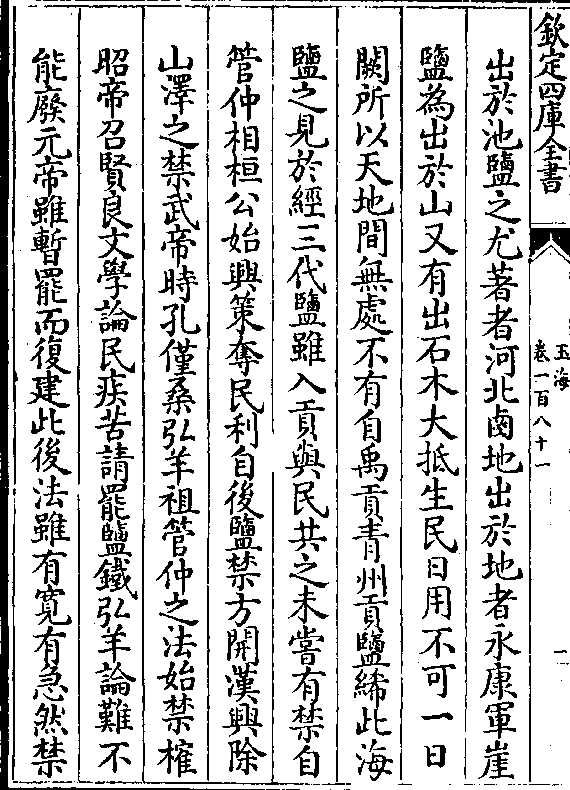 欽定四庫全書
玉海
卷一百八十一
一
出於池鹽之尤著者河北鹵地出於地者永康軍崖
鹽為出於山又有出石木大抵生民日用不可一日
闕所以天地間無處不有自禹貢青州貢鹽絺此海
鹽之見於經三代鹽雖入貢與民共之未嘗有禁自
管仲相桓公始興策奪民利自後鹽禁方開漢興除
山澤之禁武帝時孔僅桑弘羊祖管仲之法始禁榷
昭帝召賢良文學論民疾苦請罷鹽鐵弘羊論難不
能廢元帝雖暫罷而復建此後法雖有寬有急然禁